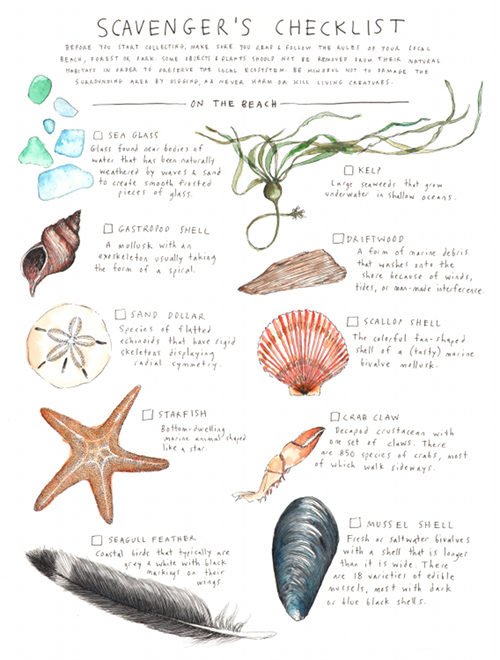 SCAVENGER'S CHECKLIST
BEFORE YOU START COLLECTING, MAKE SURE YOU READ & FOLLOW THE RULES OF YOUR LOCAL
BEACH, FOREST OR PARK. SOME OBJECTS & PLANTS SHOULD NOT BE REMOVED FROM THEIR NATURAL
HABITATS IN ORDER TO PRESERVE THE LOCAL ECOSYSTEM. BE MINDFUL NOT TO DAMAGE THE
SURROUNDING AREA BY DIGGING, OR NEVER HARM OR KILL LIVING CREATURES.
ON THE BEACH
SEA GLASS
Glass found near bodies of
water that has been naturally
weathered by waves & sand
to create smooth frosted
pieces of glass.
KELP
Large seaweeds that grow
underwater in shallow oceans.
GASTROPOD SHELL
A mollusk with an
exoskeleton usually taking
the form of a spiral.
DRIFTWOOD
A form of marine debris
that washes onto the
shore because of winds,
tides, or man-made interference.
SAND DOLLAR
Species of flatted
echinoids that have rigid
skeletons displaying
radial symmetry.
SCALLOP SHELL
The colorful fan-shaped
shell of a (tasty) marine
bivalve mollusk.
STARFISH
Bottom-dwelling
marine animal shaped
like a star.
CRAB CLAW
Decapod crustacean with
one set of claws. There
are 850 species of crabs, most
of which walk sideways.
SEAGULL FEATHER
Coastal birds that typically are
grey & white with black
markings on their
wings.
MUSSEL SHELL
Fresh or saltwater bivalves
with a shell that is longer
than it is wide. There
are 18 varieties of edible
mussels, most with dark
or blue black shells.